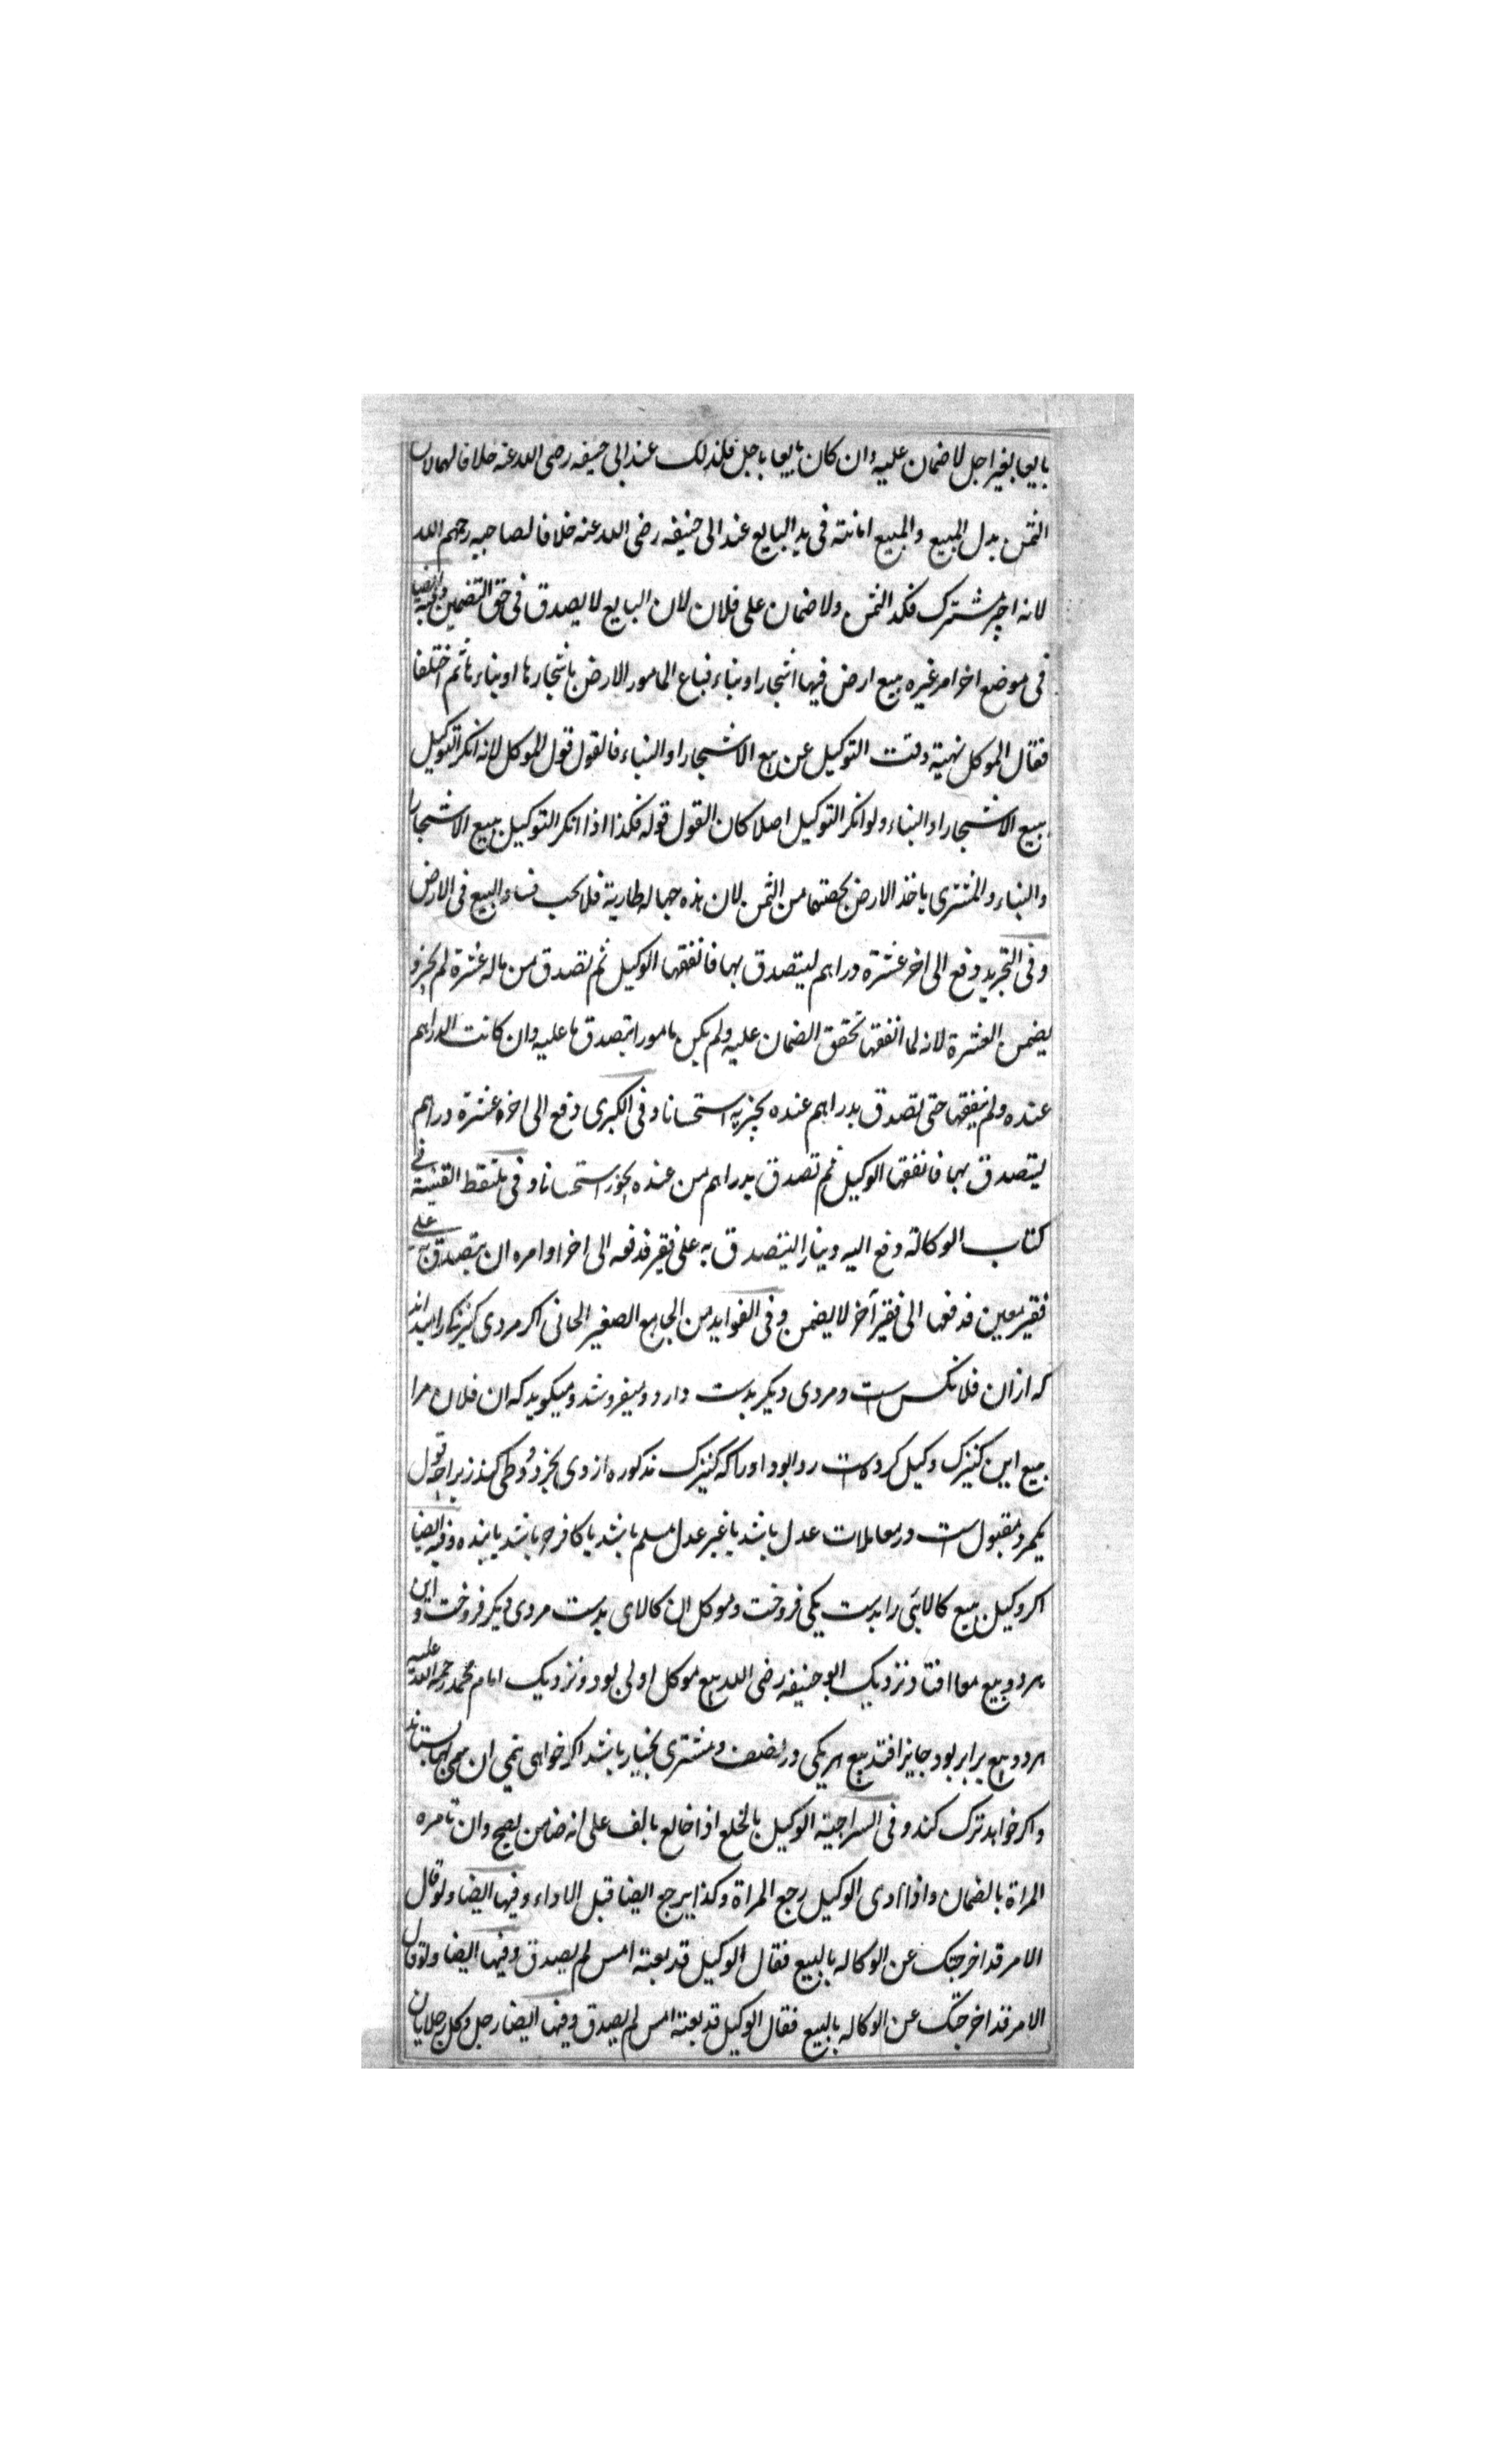 بايعا بغير اجل لا ضمان عليه وان كان بايعا باجل فكذلك عند ابى حنيفه رضى الله عنه خلافا لهما لان
الثمن بدل المبيع والمبيع امانته فى يد البايع عند ابى حنيفه رضى الله عنه خلافا لصاحبيه رحمهم الله
لانه اجير مشترك فكذا الثمن ولا ضمان على فلان لان البايع لا يصدق فى حق التضمين وفيه ايضا
فى موضع اخر امر غيره ببيع ارض فيها اشجار او بناء فباع المامور الارض باشجارها او بناءها ثم اختلفا
فقال الموكل نهيته وقت التوكيل عن بيع الاشجار او البناء فالقول قول الموكل لانه انكر التوكيل
ببيع الاشجار او البناء ولو انكر التوكيل اصلا كان القول قوله فكذا اذا انكر التوكيل ببيع الاشجار
والبناء والمشترى ياخذ الارض بحصتها من الثمن لان هذه جهاله طارية فلا يجب فساد البيع فى الارض
وفى التجريد دفع الى اخر عشرة دراهم ليتصدق بها فانفقها الوكيل ثم تصدق من ماله عشرة لم يجز و
يضمن العشرة لانه لما انفقها تحقق الضمان عليه ولم يكن مامورا بتصدق ما عليه وان كانت الدراهم
عنده ولم ينفقها حتى تصدق بدراهم عنده يجزيه استحسانا وفى الكبرى دفع الى اخر عشرة دراهم
ليتصدق بها فانفقها الوكيل ثم تصدق بدراهم من عنده يجوز استحسانا وفى ملتقط القنية فى
كتاب الوكالة دفع اليه دينارا ليتصدق به على فقير فدفعه الى اخر او امره ان يتصدق به على
فقير معين فدفعها الى فقير آخر لا يضمن وفى الفوايد من الجامع الصغير الخانى اكر مردى كنيزكى را ميداند
كه از ان فلانكس است و مردى ديكر بدست دارد و ميفروشد و ميكويد كه ان فلان مرا
ببيع اين كنيزك وكيل كرده است روا بود او را كه كنيزك مذكوره از وى بخرد و وطى كند زيرا چه قول
يكمرد مقبول است در معاملات عدل باشد يا غير عدل مسلم باشد يا كافر حر باشد يا بنده وفيه ايضا
اكر وكيل ببيع كالائى را بدست يكى فروخت و موكل ان كالاى بدست مردى ديكر فروخت و اين
هر دو بيع معا افتاد نزديك ابو حنيفه رضى الله بيع موكل اولى بود و نزديك امام محمد رحمة الله عليه
هر دو بيع برابر بود جايز افتد بيع هر يكى در نصف و مشترى بخيار باشد اكر خواهى نيمى ان بستاند
واكر خواهد ترك كند وفى السراجية الوكيل بالخلع اذا خالع بالف على انه ضامن يصح وان تامره
المراة بالضمان واذا ادى الوكيل رجع المراة وكذا يرجع ايضا قبل الاداء وفيها ايضا ولو قال
الامر قد اخرجتك عن الوكاله بالبيع فقال الوكيل قد بعته امس لم يصدق وفيها ايضا ولو قال
الامر قد اخرجتك عن الوكاله بالبيع فقال الوكيل قد بعته امس لم يصدق وفيها ايضا رجل وكل رجلا بان